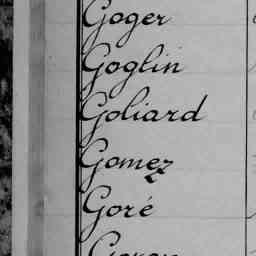 Goger
Goglin
Goliard
Gomez
Goré